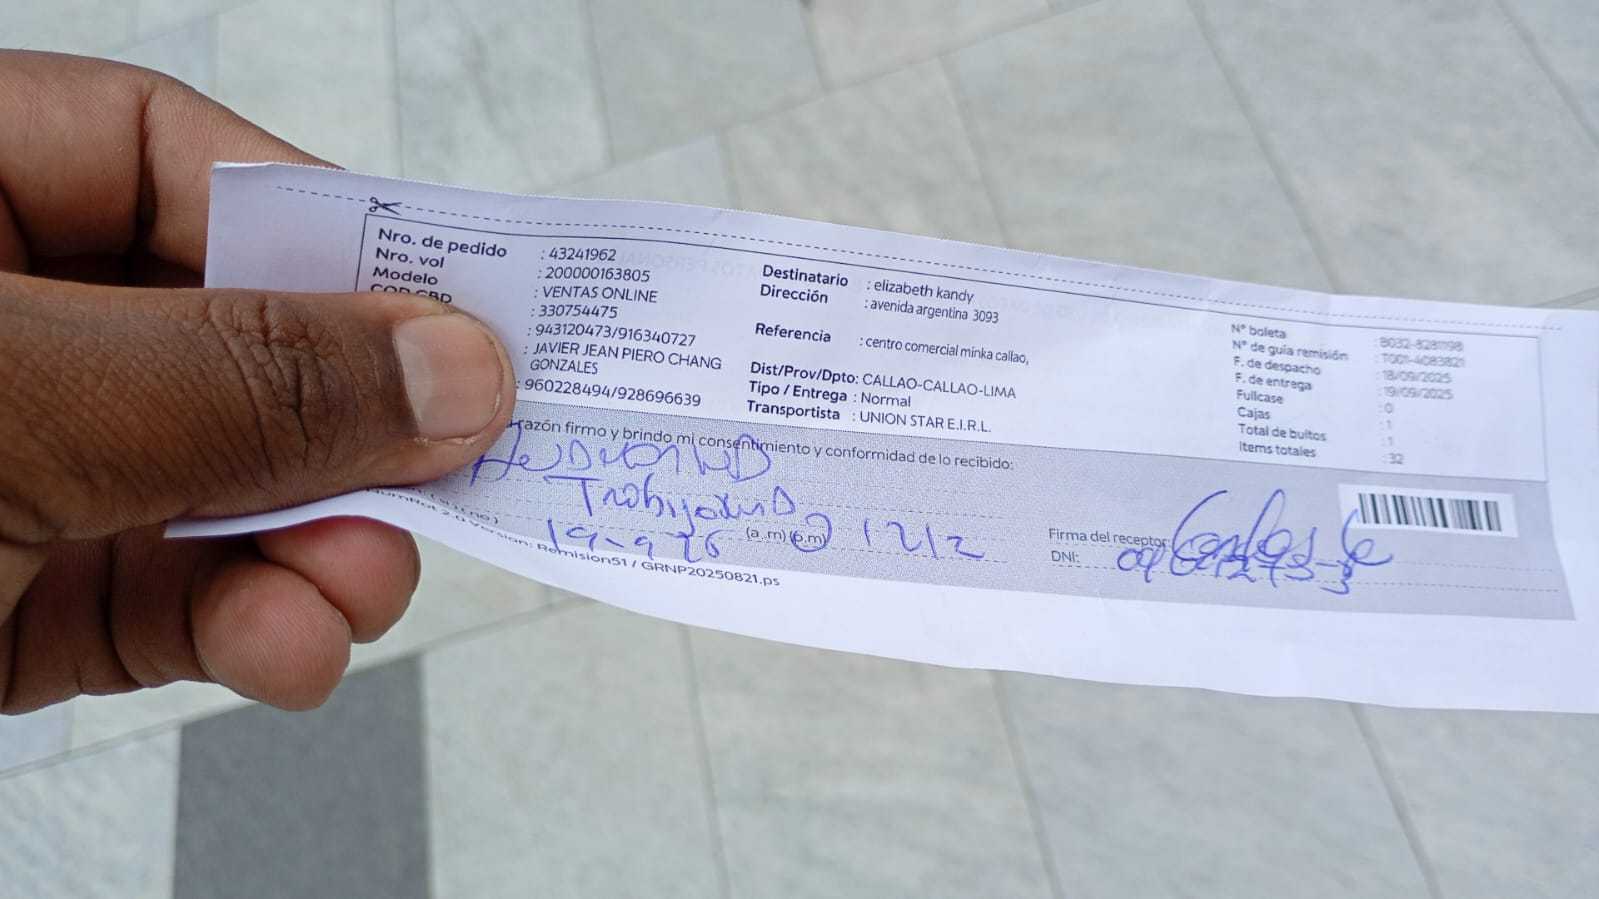 Nro. de pedido : 43241962
Nro. vol : 200000163805
Modelo : VENTAS ONLINE
: 330754475
: 943120473/916340727
: JAVIER JEAN PIERO CHANG
GONZALES
: 960228494/928696639
Destinatario : elizabeth kandy
Dirección : avenida argentina 3093
Referencia : centro comercial minka callao,
Dist/Prov/Dpto: CALLAO-CALLAO-LIMA
Tipo / Entrega : Normal
Transportista : UNION STAR E.I.R.L.
N° boleta : B032-8281198
N° de guia remisión : T001-4083821
F. de despacho : 18/09/2025
F. de entrega : 19/09/2025
Fullcase : 0
Cajas : 1
Total de bultos : 1
Items totales : 32
razón firmo y brindo mi consentimiento y conformidad de lo recibido:
(a .m) (p.m) 1212
Firma del receptor:
DNI:
Version: Remision51 / GRNP20250821.ps